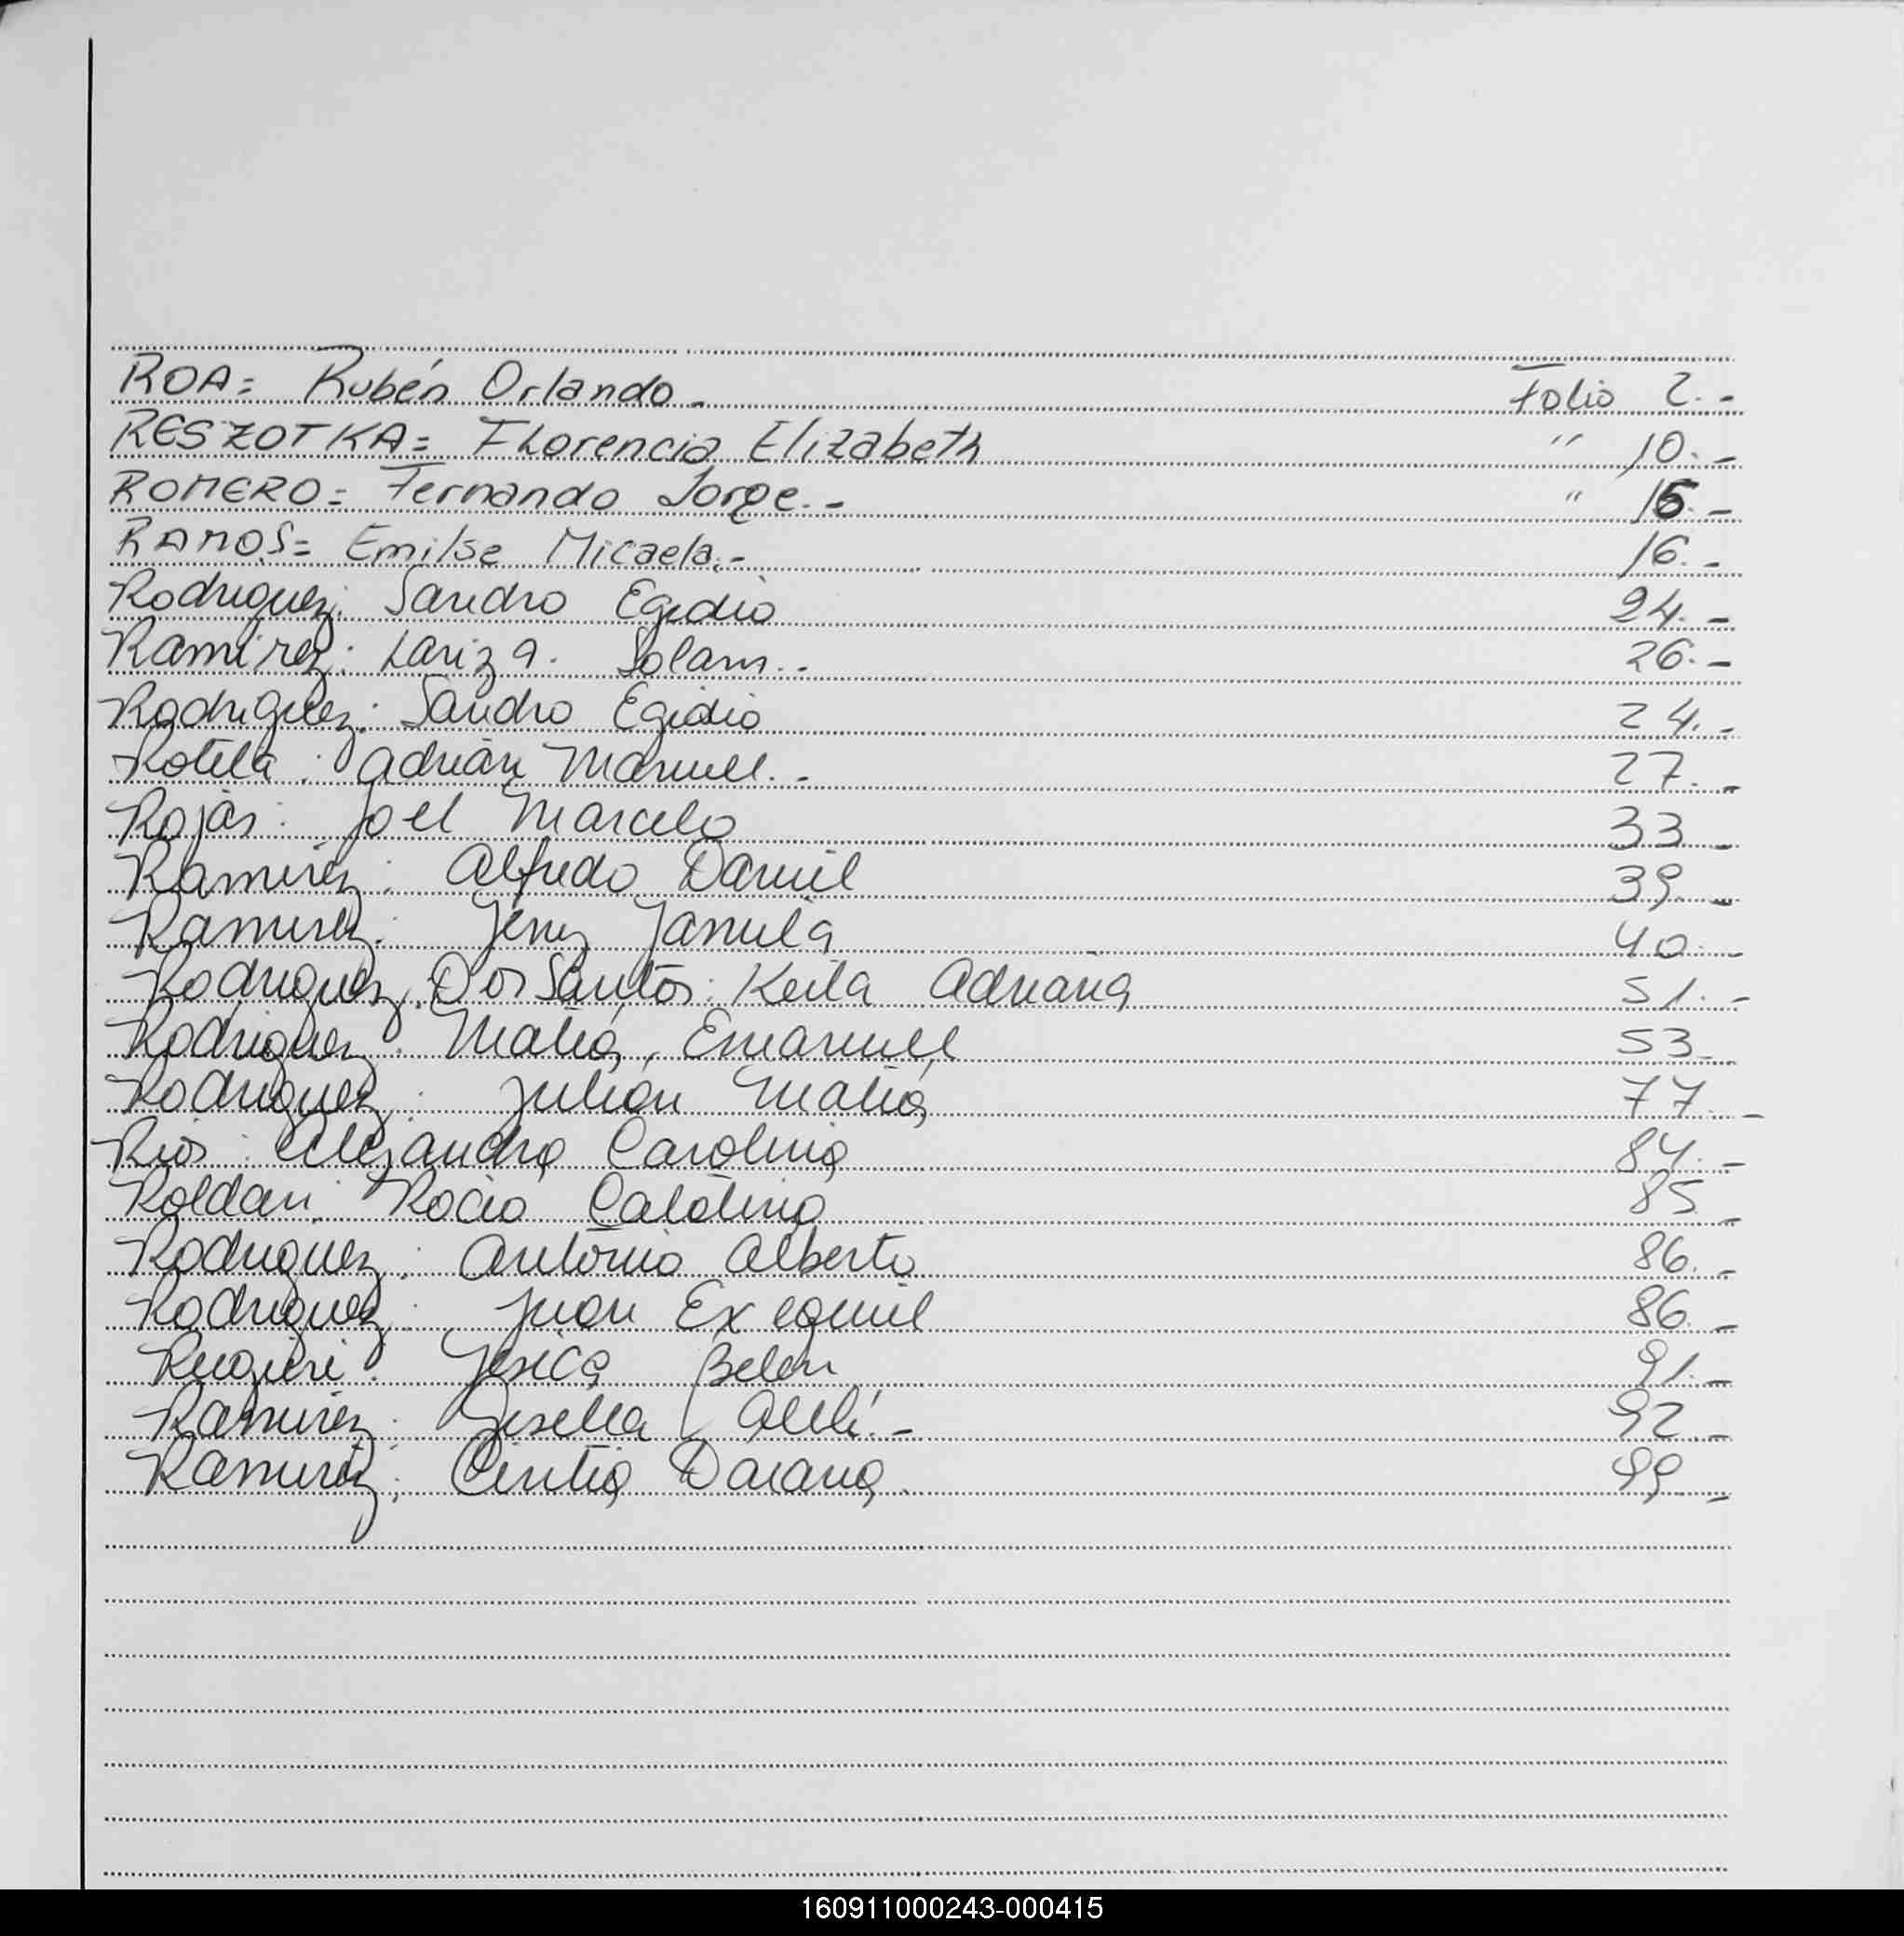 ROA= Rubén Orlando.- Folio 2.-
RESZOTKA= Florencia Elizabeth " 10.-
ROMERO= Fernando Jorge.- " 15.-
RAMOS= Emilse Micaela.- 16.-
Rodriguez: Sandro Egidio 24.-
Ramirez: Lariza Solam.- 26.-
Rodriguez: Sandro Egidio 24.-
Rotela: Adrián Manuel.- 27.-
Rojas: Joel Marcelo 33.-
Ramirez: Alfredo Daniel 39.-
Ramirez: Yamila 40.-
Rodriguez Dos Santos: Keila Adriana 51.-
Rodriguez: Matia, Emanuel 53.-
Rodriguez: Julián Matia 77.-
Rios: Alejandra Carolina 84.-
Roldan: Rocio Catalina 85.-
Rodriguez: Antonio Alberto 86.-
Rodriguez: Juan Exequiel 86.-
Rugieri: Yesica Belen 91.-
Ramirez: Gisella 92.-
Ramirez: Cintia Daiana. 99.-
160911000243-000415